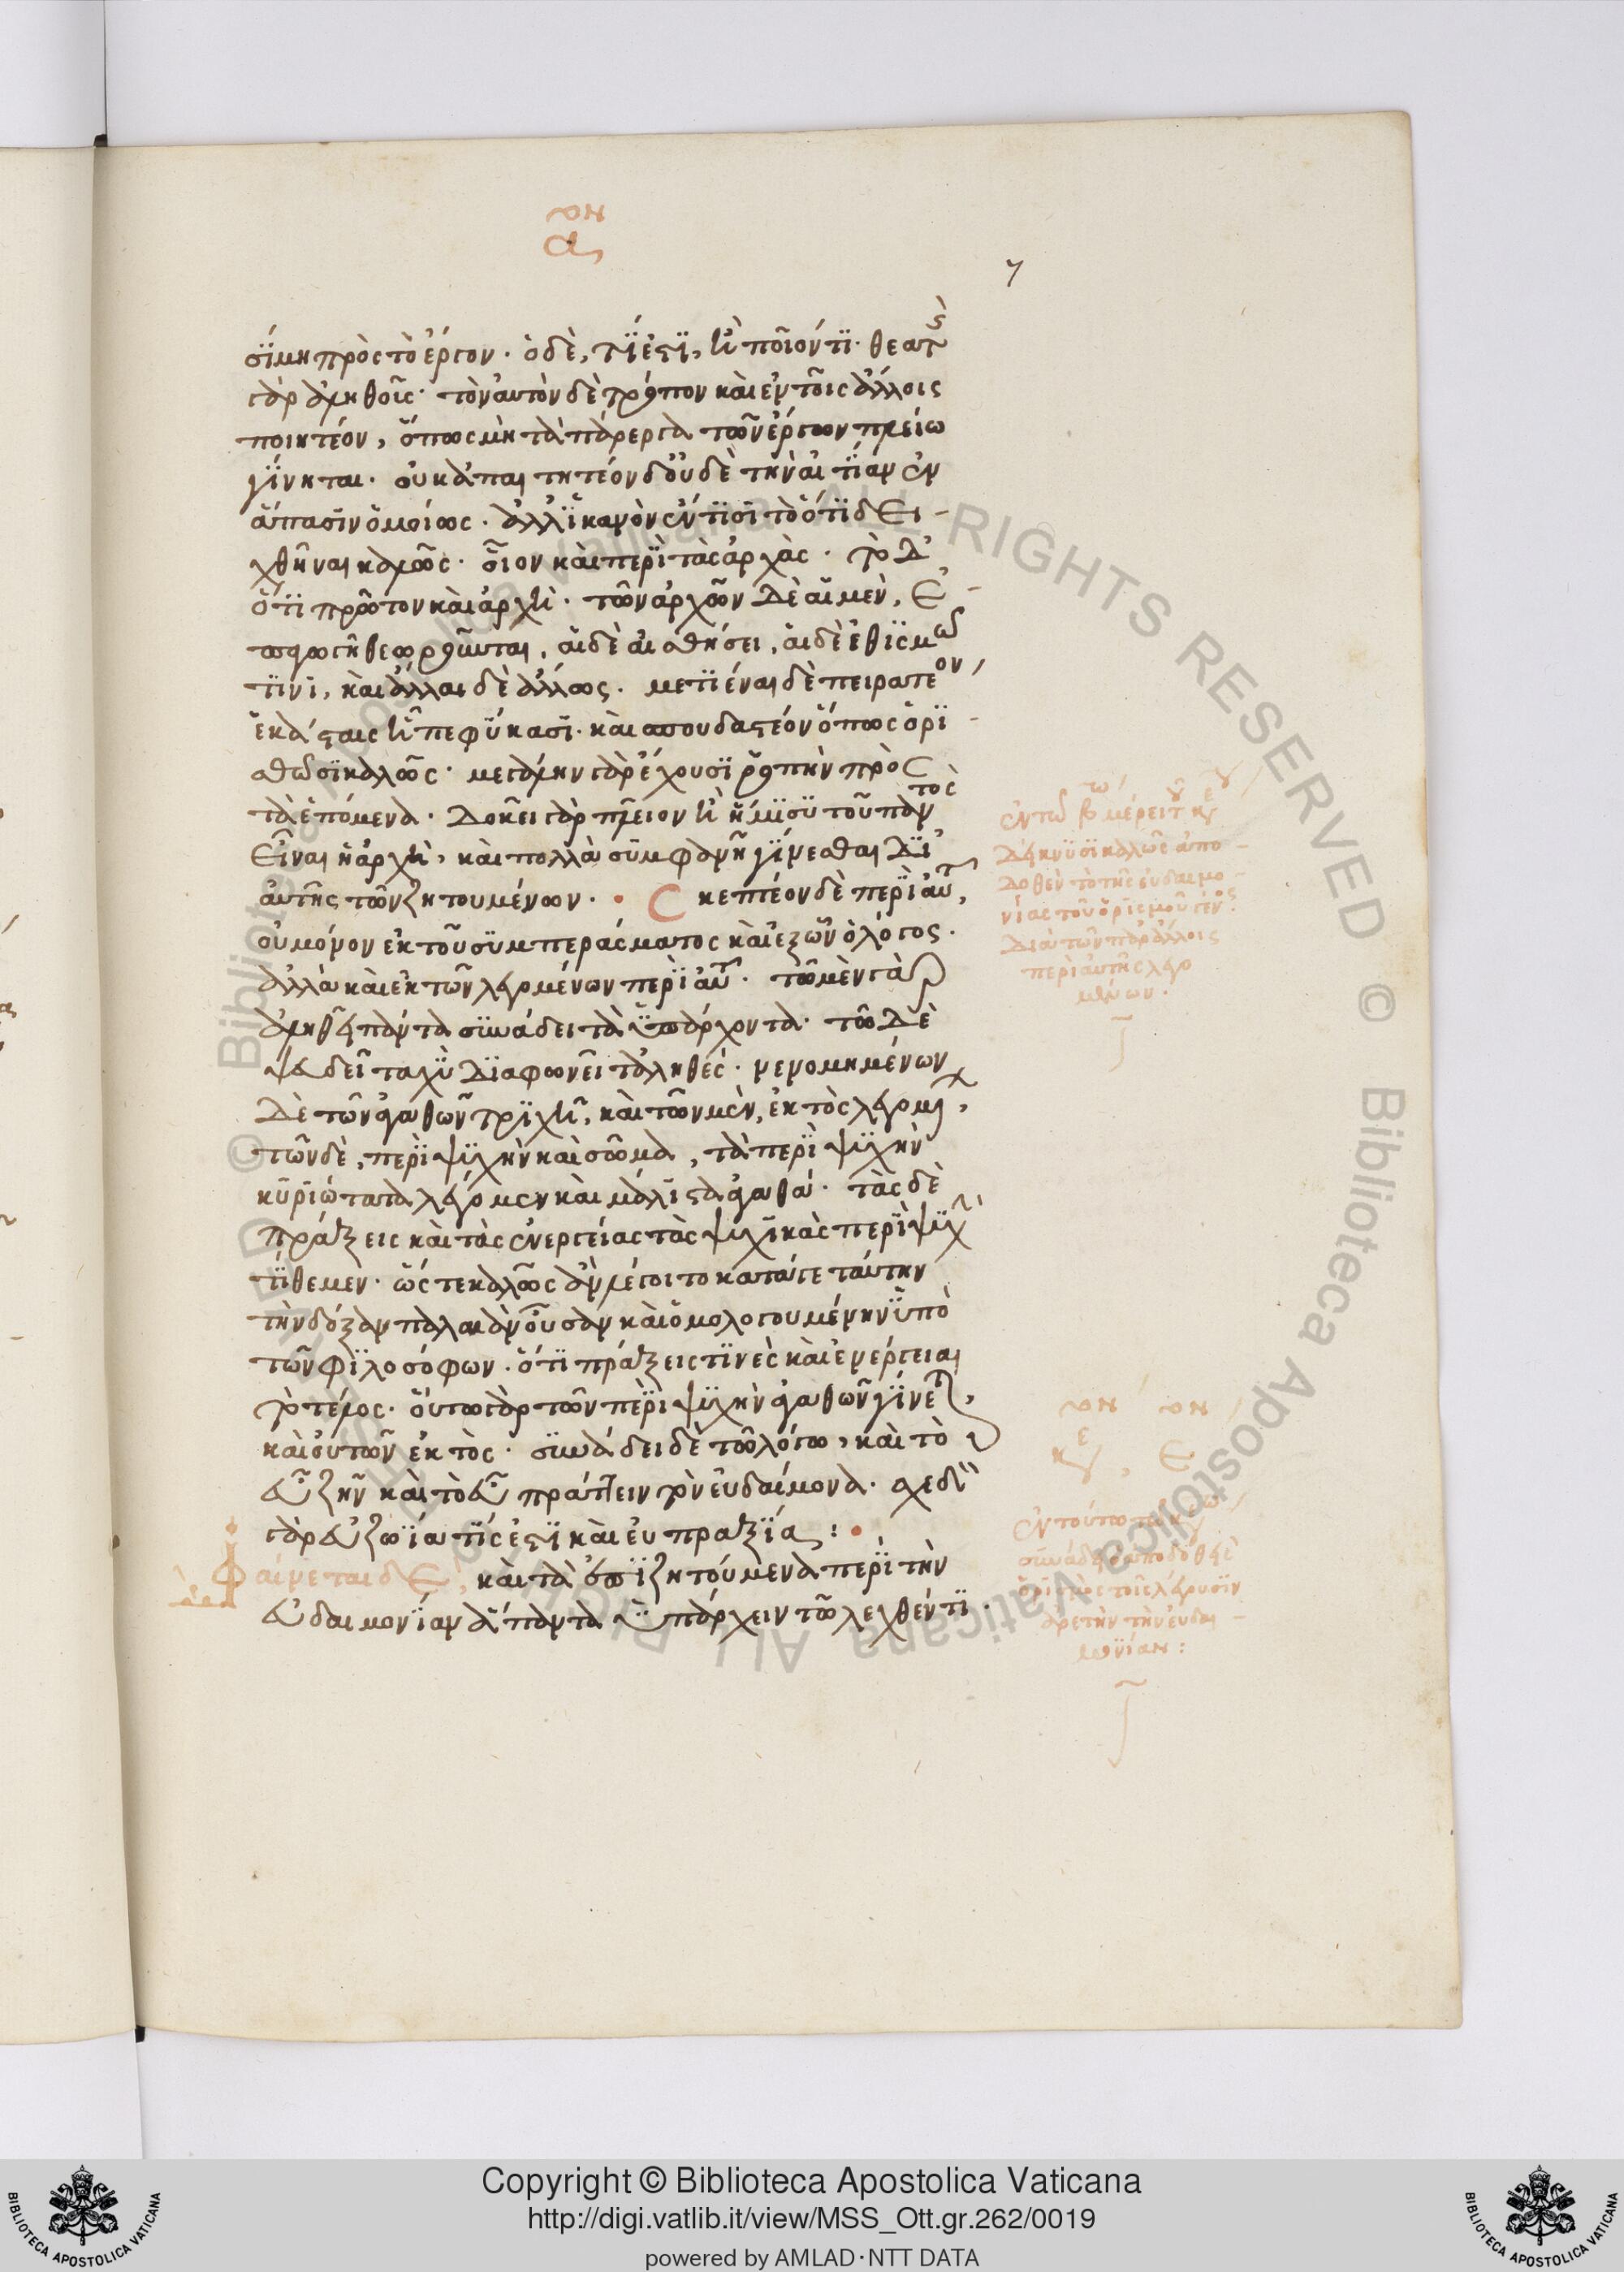 ον
α,
7
σίμη πρὸς τὸ ἔργον. ὁ δὲ, τί ἐστι, ἢ ποῖον τι. θεατὴς
γὰρ ἀληθοῦς. τὸν αὐτὸν δὲ τρόπον καὶ ἐν τοῖς ἄλλοις
ποιητέον, ὅπως μὴ τὰ πάρεργα τῶν ἔργων πλείω
γίνηται. οὐκ ἀπαιτητέον δ οὐδὲ τὴν αἰτίαν ἐν
ἅπασιν ὁμοίως. ἀλλ ἱκανὸν ἔν τισι τὸ ὅτι δει-
χθῆναι καλῶς. οἷον καὶ περὶ τὰς ἀρχὰς. τὸ δ
ὅτι πρῶτον καὶ ἀρχὴ. τῶν ἀρχῶν δὲ αἱ μὲν, ἐ-
παγωγῇ θεωροῦνται, αἱ δὲ αἰσθήσει, αἱ δὲ ἐθισμῶ
τινι, καὶ ἄλλαι δὲ ἄλλως. μετιέναι δὲ πειρατέον
ἑκάσταις ἧ πεφύκασι. καὶ σπουδαστέον ὅπως ὁρι-
σθῶσι καλῶς. μεγάλην γὰρ ἔχουσι ῥοπὴν πρὸς
τὰ ἑπόμενα. δοκεῖ γὰρ πλεῖον ἢ ἥμισυ τοῦ παντὸς
εἶναι ἡ ἀρχὴ, καὶ πολλὰ συμφανῆ γίνεσθαι δι
αὐτῆς τῶν ζητουμένων. Σκεπτέον δὲ περὶ αὐτ,
οὐ μόνον ἐκ τοῦ συμπεράσματος καὶ ἐξ ὧν ὁ λόγος.
ἀλλὰ καὶ ἐκ τῶν λεγομένων περὶ αὐτ. τῶ μὲν γὰρ
ἀληθεῖ πάντα συνάδει τὰ ὑπάρχοντα. τῶ δὲ
ψευδεῖ ταχὺ διαφωνεῖ τἀληθές. νενομημένων
δὲ τῶν ἀγαθῶν τριχῆ, καὶ τῶν μὲν, ἐκτὸς λεγομ,
τῶν δὲ, περὶ ψυχὴν καὶ σῶμα, τὰ περὶ ψυχὴν
κυριώτατα λέγομεν καὶ μάλιστα ἀγαθά. τὰς δὲ
πράξεις καὶ τὰς ἐνεργείας τὰς ψυχικὰς περὶ ψυχὴν
τίθεμεν. ὥστε καλῶς ἂν λέγοιτο κατά γε ταύτην
τὴν δόξαν παλαιὰν οὖσαν καὶ ὁμολογουμένην ὑπὸ
τῶν φιλοσόφων. ὅτι πράξεις τινὲς καὶ ἐνέργειαι
τὸ τέλος. οὕτω γὰρ τῶν περὶ ψυχὴν ἀγαθῶν γίνετ,
καὶ οὐ τῶν ἐκτὸς. συνάδει δὲ τῶ λόγω, καὶ τὸ
εὖ ζῆν καὶ τὸ εὖ πράττειν τὸν εὐδαίμονα. σχεδὸν
γὰρ εὐζωία τίς ἐστι καὶ εὐπραξία:
Φαίνεται δὲ, καὶ τὰ ἐπιζητούμενα περὶ τὴν
εὐδαιμονίαν ἅπαντα ὑπάρχειν τῶ λεχθέντι.
ἐν τῶ β μέρει τοῦ κεφ
δείκνυσι καλῶς ἀπο-
δοθὲν τὸ τῆς εὐδαιμο-
νίας τοῦ ὁρισμοῦ γένος.
διὰ τῶν παρ ἄλλοις
περὶ αὐτῆς λεγο
μένων.
ον ον
κεφ, ε
ἐν τούτω τῶ κεφ
συνάδειν ἀποδοθεὶς
ὁρισμὸς τοῖς λέγουσιν
ἀρετὴν τὴν εὐδαι-
μονίαν:
Copyright © Biblioteca Apostolica Vaticana
http://digi.vatlib.it/view/MSS_Ott.gr.262/0019
powered by AMLAD·NTT DATA
BIBLIOTECA APOSTOLICA VATICANA
BIBLIOTECA APOSTOLICA VATICANA